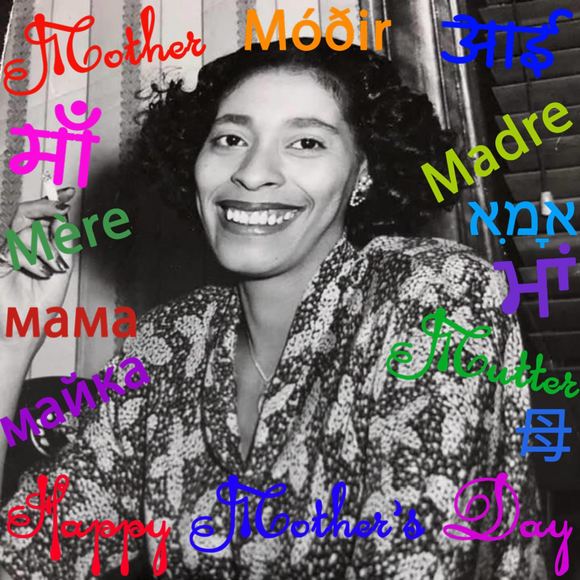 Mother Móðir आई
माँ Madre
Mère אִמָא
માં
мама Mutter
майка 母
Happy Mother's Day